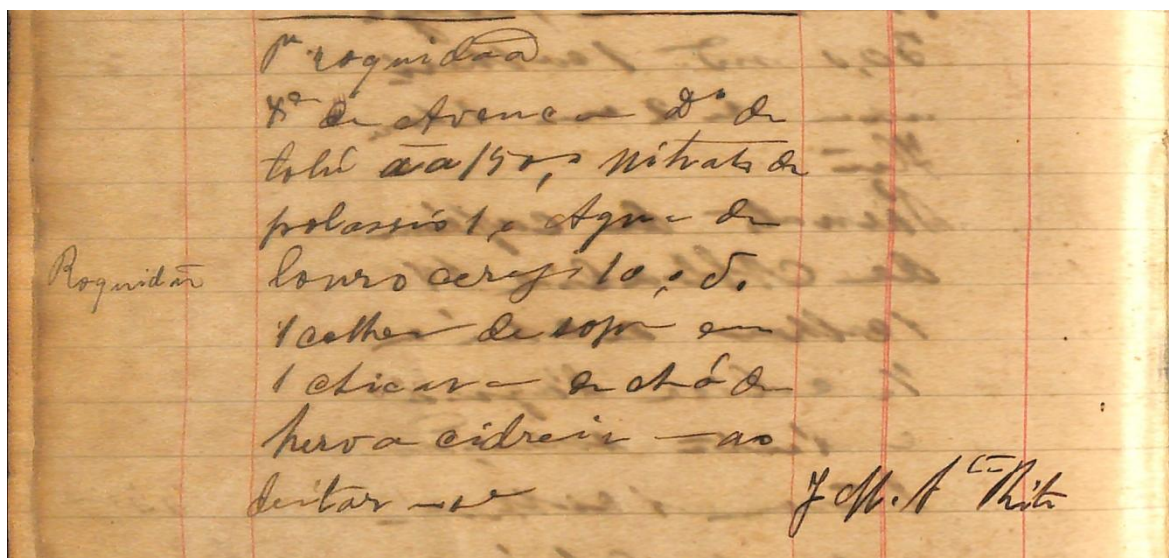 Pª roquidão
Xe de Avenca Dº de
tolú āa 150,0 Nitrato de
potassio 1,0 Agua de
Roquidão
louro cerejo 10,0 d.
1 colher de sopa em
1 chicara de chá de
herva cidreira ao
deitar-se
J M. A